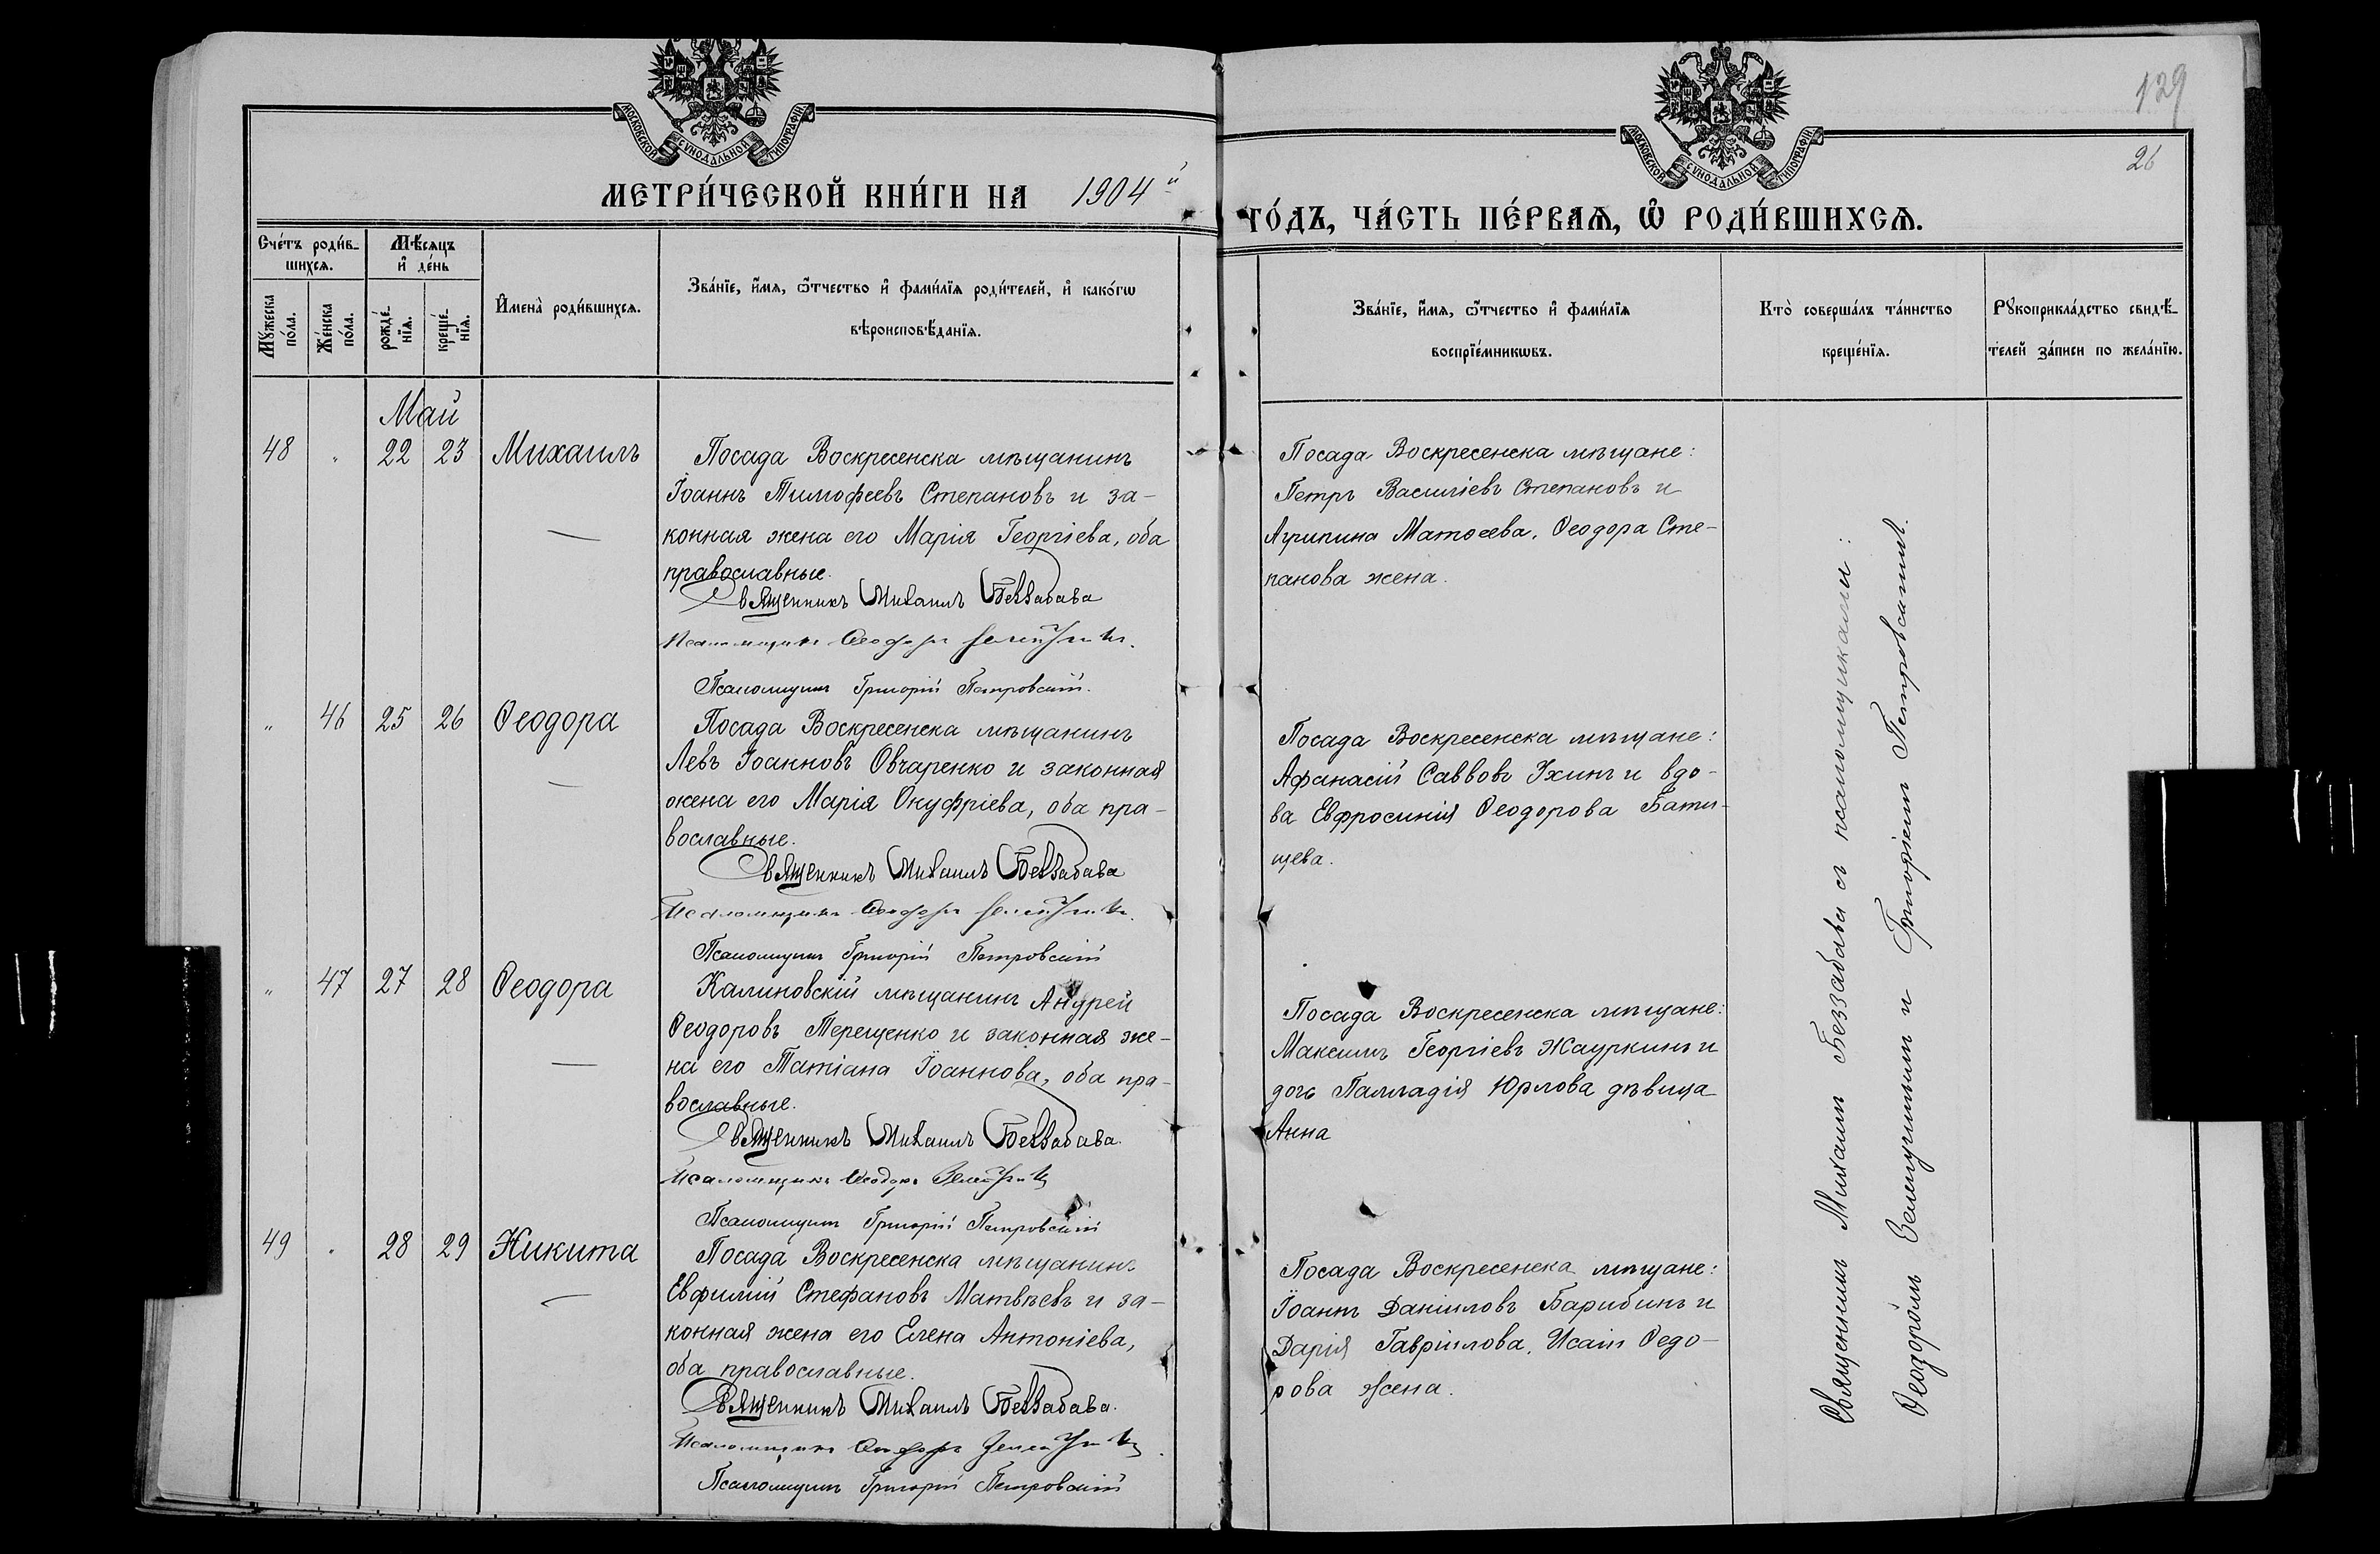 129
26
МОСКОВСКОЙ СѴНОДАЛЬНОЙ ТИПОГРАФІИ
МОСКОВСКОЙ СѴНОДАЛЬНОЙ ТИПОГРАФІИ
МЕТРИ́ЧЕСКОЙ КНИ́ГИ НА 1904й
ГО́ДЪ, ЧА́СТЬ ПЕ́РВАѦ, Ѡ҆ РОДИ́ВШИХСѦ.
Сче́тъ роди́в-
шихсѧ.
Мꙋжеска
по́ла.
Же́нска
по́ла.
Мѣ́сѧцъ
и҆ де́нь
рожде́-
нїѧ.
креще́-
нїѧ.
И҆мена̀ роди́вшихсѧ.
Зва́нїе, и҆́мѧ, ѻ҆́тчество и҆ фами́лїѧ роди́телей, и҆ како́гѡ
вѣроисповѣ́данїѧ.
Зва́нїе, и҆́мѧ, ѻ҆́тчество и҆ фами́лїѧ
воспрїе́мникѡвъ.
Кто̀ соверша́лъ та́инство
креще́нїѧ.
Рꙋкоприкла́дство свидѣ́-
телей за́писи по жела́нїю.
Май
48 „ 22 23 Михаилъ
Посада Воскресенска мѣщанинъ
Іоаннъ Тимофеевъ Степановъ и за-
конная жена его Марія Георгіева, оба
православные.
Священникъ Михаилъ Беззабава
Псаломщикъ Ѳеодоръ
Псаломщикъ Григорій Петровскій.
Посада Воскресенска мѣщане:
Петръ Василіевъ Степановъ и
Агрипина Матѳеева, Ѳеодора Сте-
панова жена.
„ 46 25 26 Ѳеодора
Посада Воскресенска мѣщанинъ
Левъ Іоанновъ Овчаренко и законная
жена его Марія Онуфріева, оба пра-
вославные.
Священникъ Михаилъ Беззабава
Псаломщикъ Ѳеодоръ
Псаломщикъ Григорій Петровскій
Посада Воскресенска мѣщане:
Афанасій Саввовъ Ухинъ и вдо-
ва Евфросинія Ѳеодорова Бати-
щева.
„ 47 27 28 Ѳеодора
Калиновскій мѣщанинъ Андрей
Ѳеодоровъ Терещенко и законная же-
на его Татіана Іоаннова, оба пра-
вославные.
Священникъ Михаилъ Беззабава.
Псаломщикъ Ѳеодоръ
Псаломщикъ Григорій Петровскій
Посада Воскресенска мѣщане:
Максимъ Георгіевъ Жауркинъ и
дочь Палладія Юрлова дѣвица
Анна
49 „ 28 29 Никита
Посада Воскресенска мѣщанинъ
Евфимій Стефановъ Матвѣевъ и за-
конная жена его Елена Антоніева,
оба православные.
Священникъ Михаилъ Беззабава.
Псаломщикъ Ѳеодоръ
Псаломщикъ Григорій Петровскій
Посада Воскресенска мѣщане:
Іоаннъ Даніиловъ Барибинъ и
Дарія Гавріилова, Исаіи Ѳедо-
рова жена.
Священникъ Михаилъ Беззабава съ псаломщиками:
Ѳеодоромъ и Григоріемъ Петровскимъ.